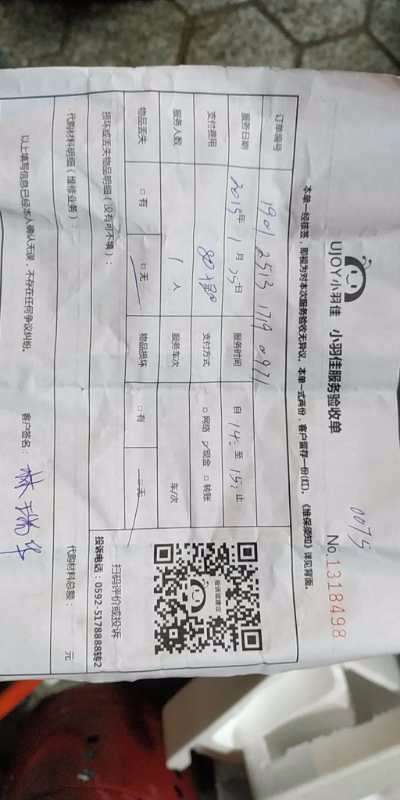 0075
UJOY小羽佳 小羽佳服务验收单
No.1318498
本单一经核签，即视为对本次服务验收无异议。本单一式两份，客户留存一份(红)。《维保须知》详见背面。
订单编号 1901 2513 1719 0971
服务日期 2019年1月25日 服务时间 自14:至15:止
支付费用 支付方式 □网络 □现金 □转账
服务人数 1人 服务车次 车/次
物品丢失 □有 □无 物品损坏 □有 □无
损坏或丢失物品明细（没有可不填）：
扫码评价或投诉
投诉电话：0592-5178888转2
代购材料明细（维修业务）： 代购材料总额： 元
以上填写信息已经本人确认无误，不存在任何争议纠纷。 客户签名：林瑞华